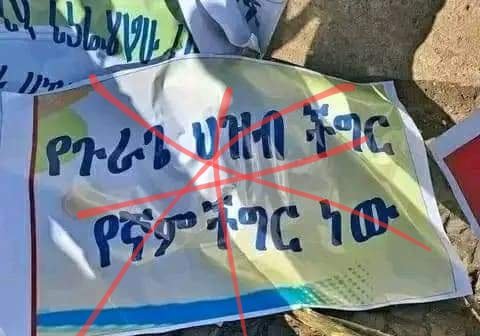 የጉራጌ ህዝብ ችግር
የኛም ችግር ነው